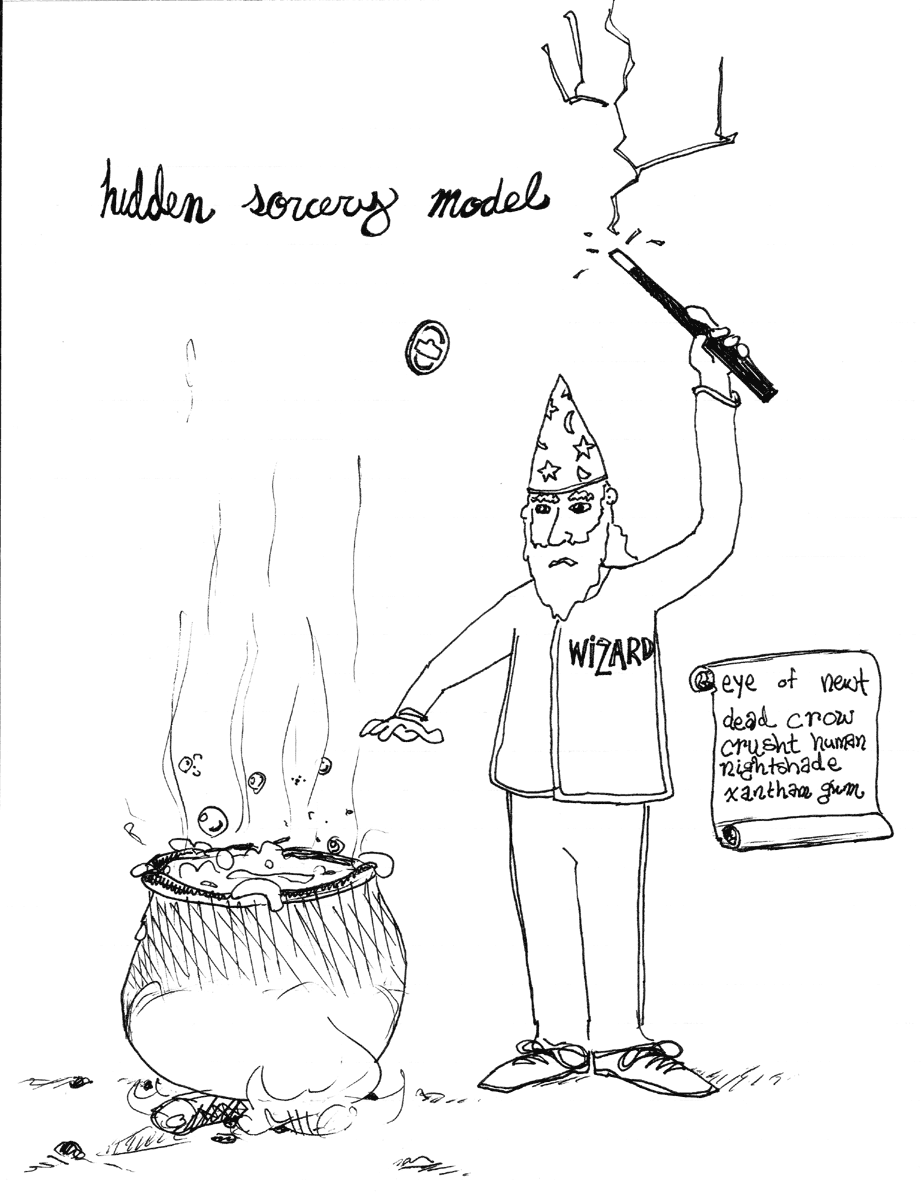 hidden sorcery model
WiZARD
eye of newt
dead crow
crusht human
nightshade
xanthan gum